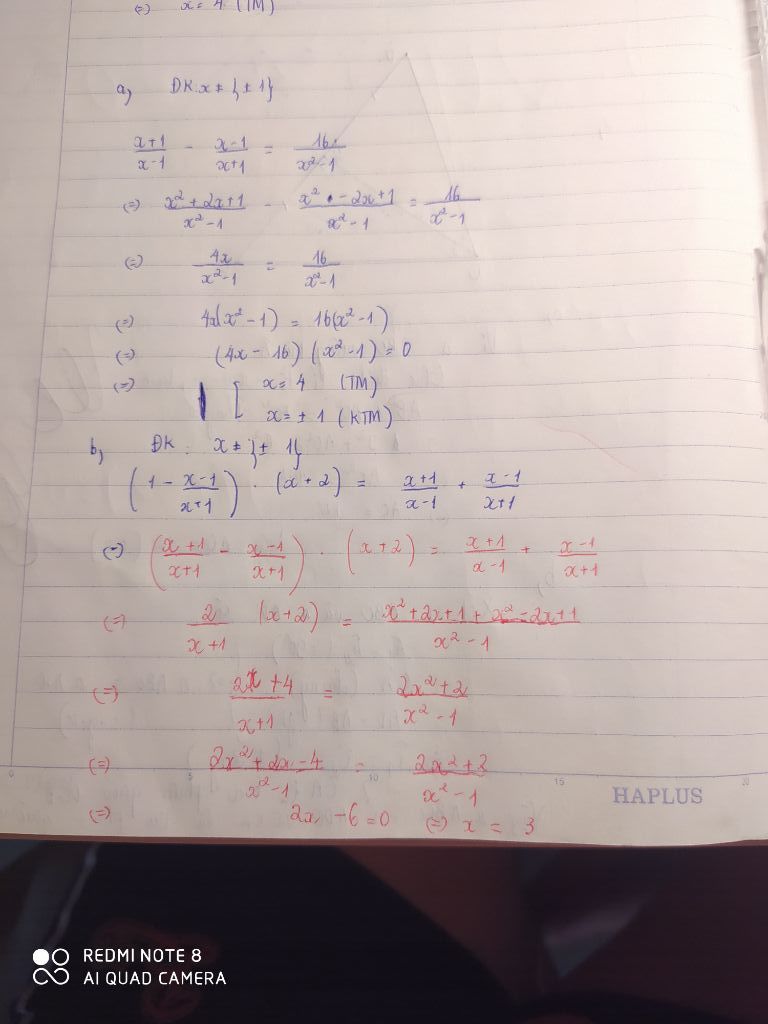 (=) x = 4 (TM)
a, ĐK: x ≠ {± 1}
x+1/x-1 - x-1/x+1 = 16/x²-1
(=) x²+2x+1/x²-1 - x²-2x+1/x²-1 = 16/x²-1
(=) 4x/x²-1 = 16/x²-1
(=) 4x(x²-1) = 16(x²-1)
(=) (4x-16)(x²-1) = 0
(=) [ x = 4 (TM)
x = ± 1 (KTM)
b, ĐK: x ≠ {± 1}
(1 - x-1/x+1) . (x+2) = x+1/x-1 + x-1/x+1
(=) (x+1/x+1 - x-1/x+1) . (x+2) = x+1/x-1 + x-1/x+1
(=) 2/x+1 (x+2) = x²+2x+1+x²-2x+1/x²-1
(=) 2x+4/x+1 = 2x²+2/x²-1
(=) 2x²+2x-4/x²-1 = 2x²+2/x²-1
0 5 10 15 20
HAPLUS
(=) 2x-6=0 (=) x = 3
REDMI NOTE 8
AI QUAD CAMERA